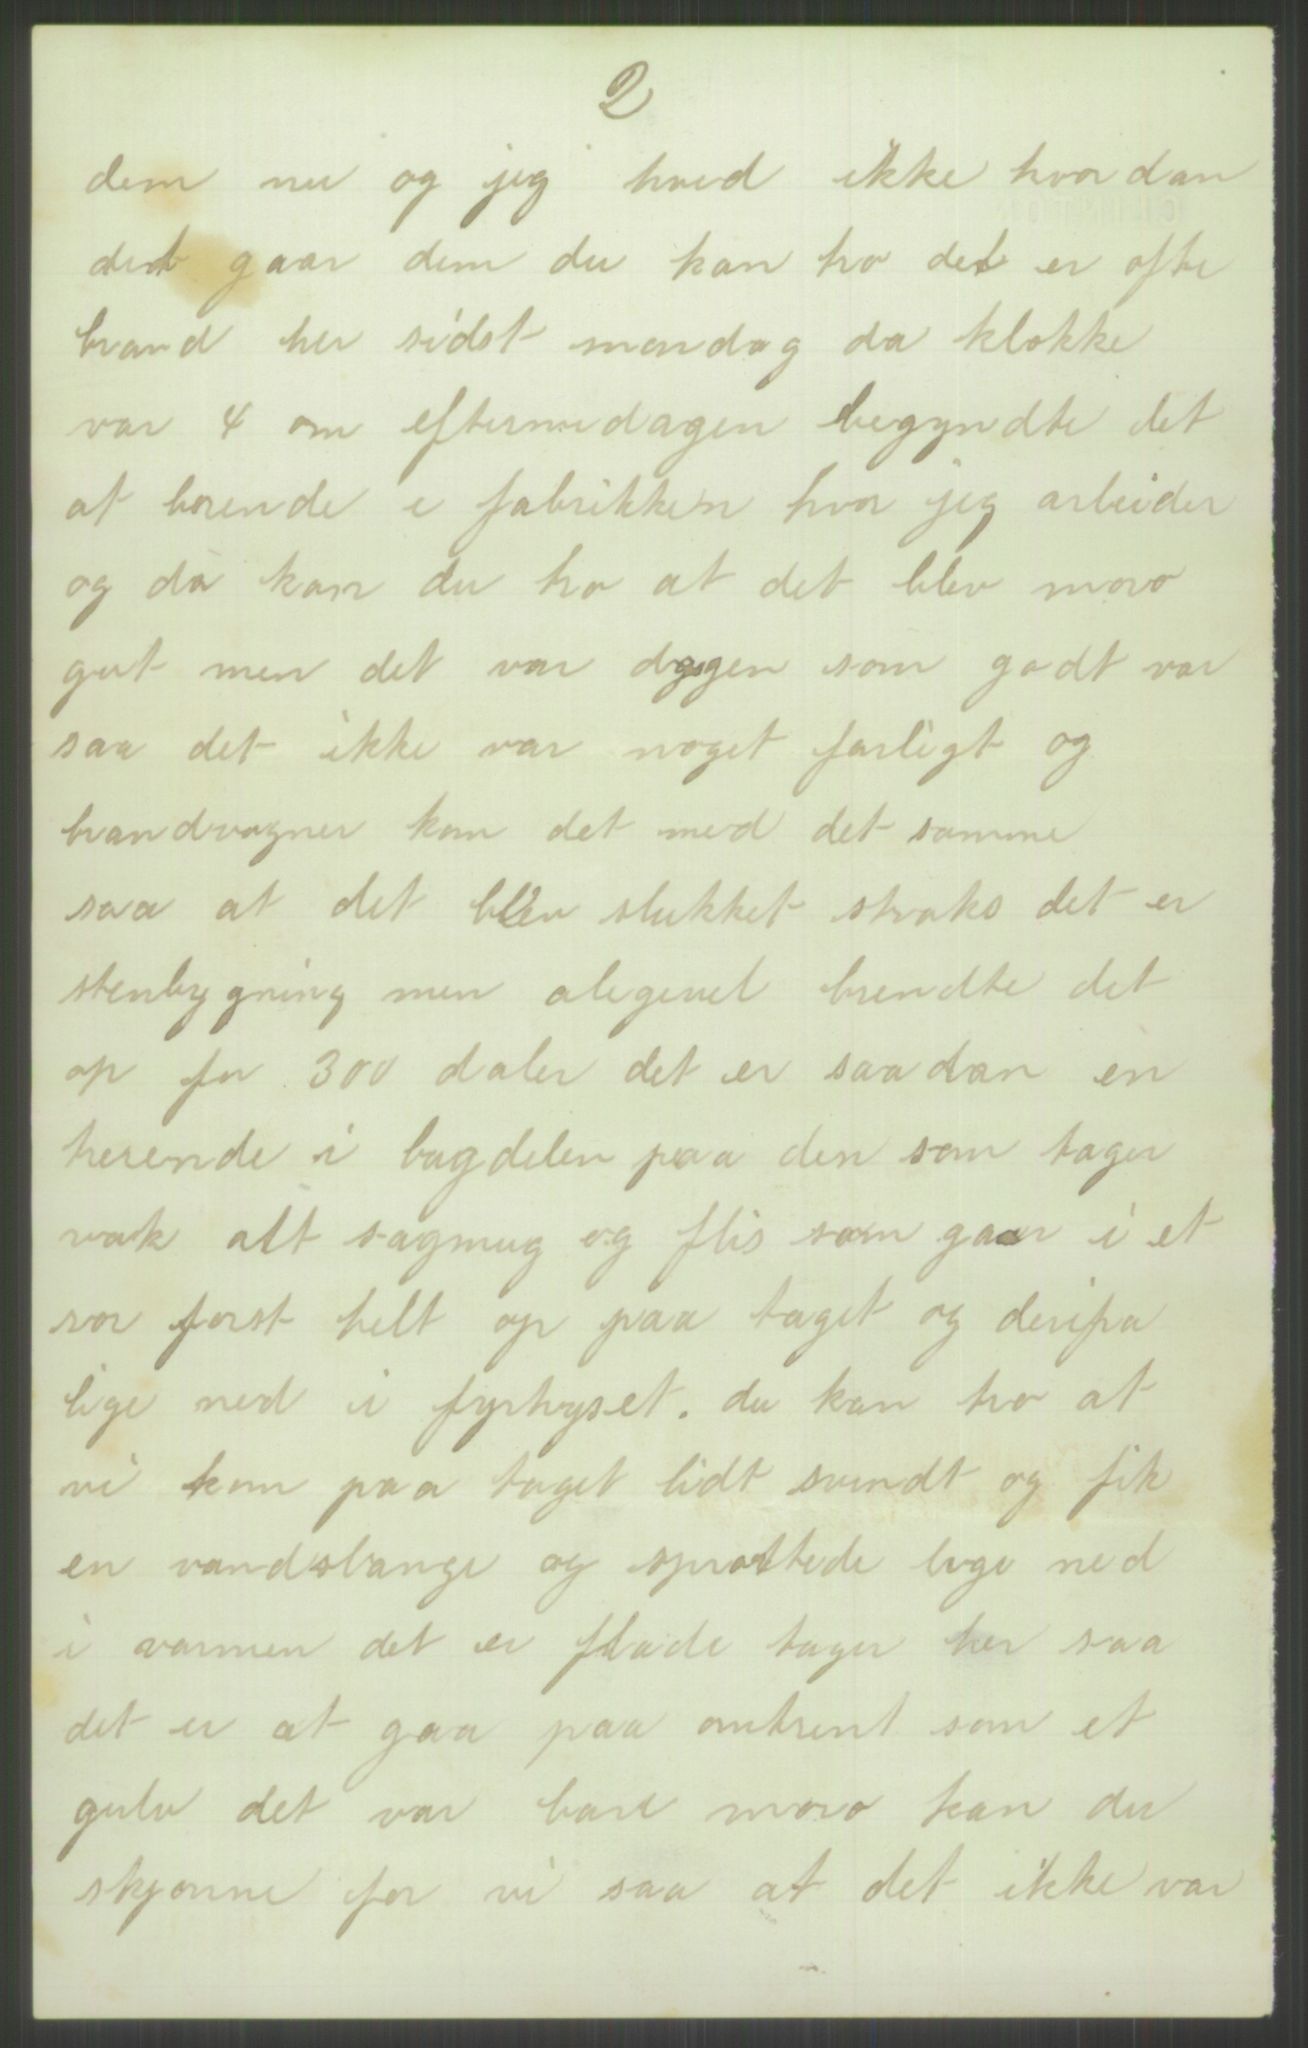 2
dem nu og jeg hved ikke hvordan
det gaar dem du kan tro det er ofte
brand her sidst mandag da klokke
var 4 om eftermedagen begyndte det
at brende i fabrikken hvor jeg arbeider
og da kan du tro at det blev moro
gut men det var dagen som godt var
saa det ikke var noget farligt og
brandvogner kom det med det samme
saa at det blev slukket straks det er
stenbygning men alegevel brendte det
op for 300 daler det er saadan en
herende i bagdelen paa den som tager
væk alt sagmug og flis som gaar i et
ror forst helt op paa taget og derifra
lige ned i fyrhyset. du kan tro at
vi kom paa taget lidt svindt og fik
en vandslange og sprottede lige ned
i varmen det er flade tager her saa
det er at gaa paa omtrent som et
gulv det var bare moro kan du
skjonne for vi saa at det ikke var